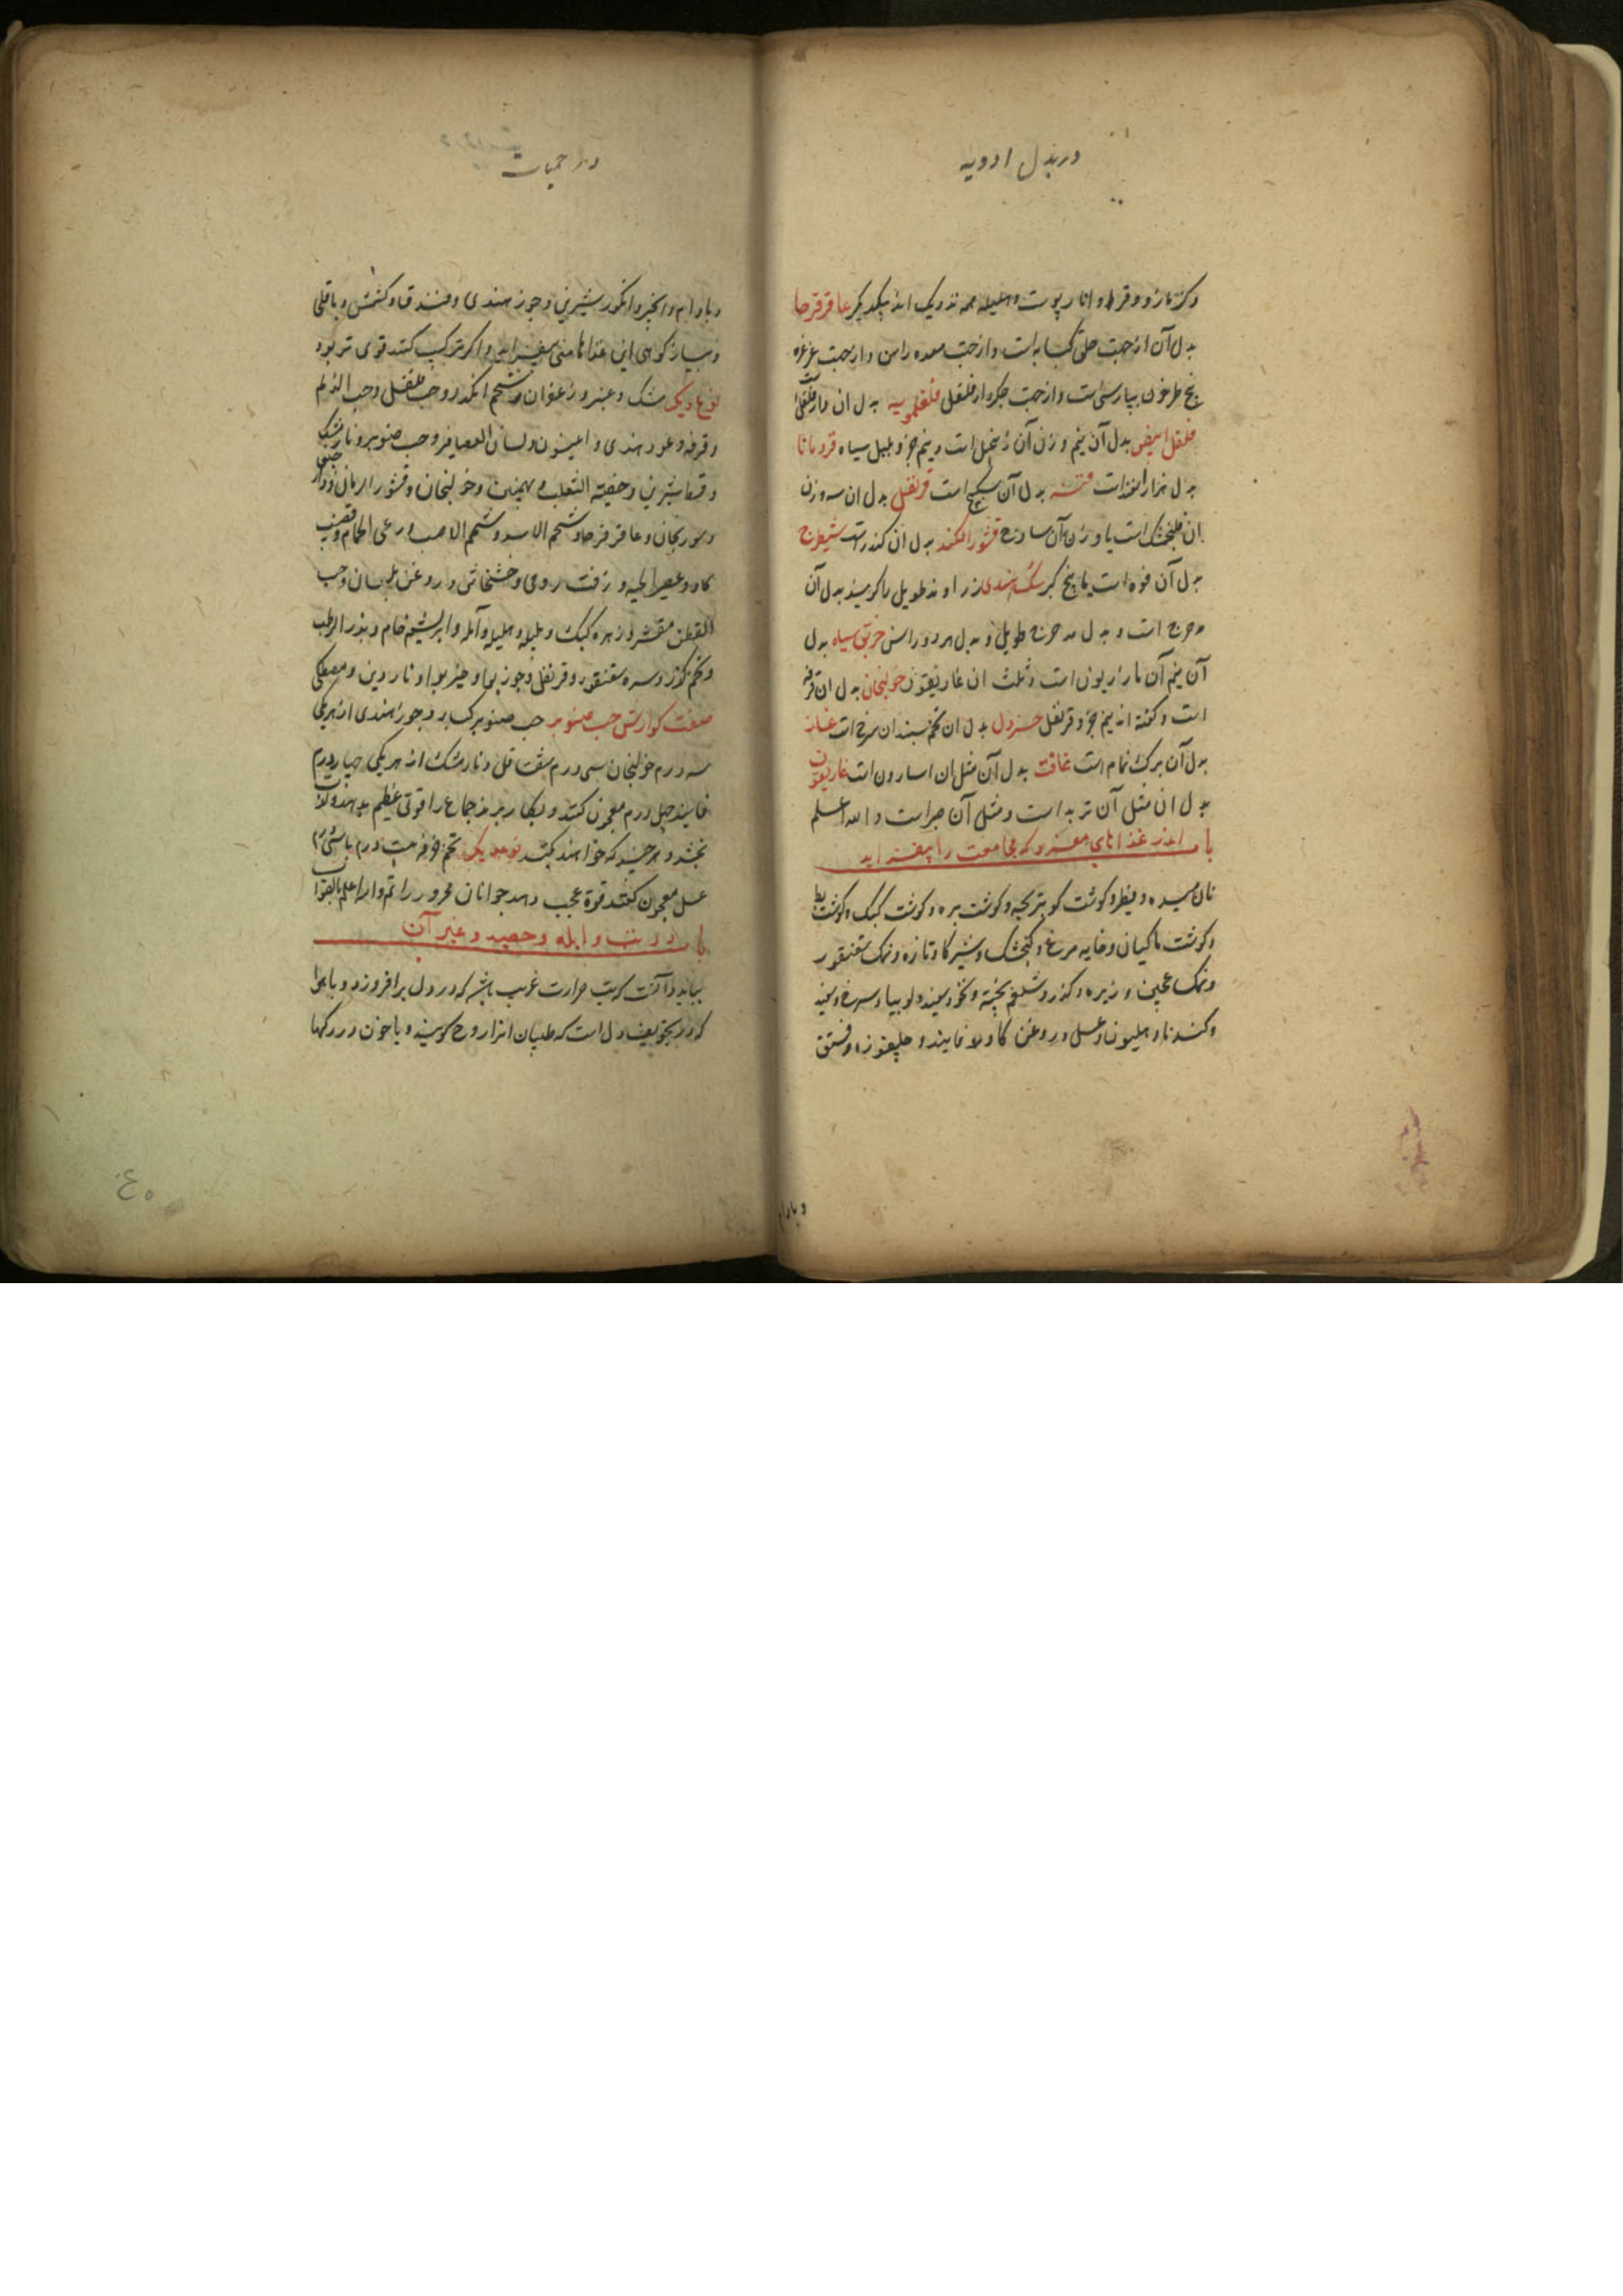 در بدل ادویه
و کزمازو و قرط و انار پوست و هلیله همه نزدیک اند بیکدیکر عاقرقرحا
بدل آن از جهت حلق کبابه است و از جهت معده راسن و از جهت غرغره
بیخ طرخون بپارسی است و از جهت جکر دارفلفل فلفلمویه بدل ان دارفلفل است
فلفل ابیض بدل آن نیم وزن آن زنجبیل است و نیم جزو پلپل سیاه قردمانا
بدل هزاراسفند است قنه بدل آن سکبینج است قرنفل بدل ان سه وزن
ان فلنجمشک است یا وزن آن سادج قشور الکندر بدل ان کندر است شیطرج
بدل آن فوه است یا بیخ کبر سک هندی زراوند طویل را کویند بدل آن
مدحرج است و بدل مدحرج طویل و بدل هر دو راسن خربق سیاه بدل
آن نیم آن مازریون است و ثلث ان غاریقون خولنجان بدل ان قرفه
است و کفته اند نیم جزو قرنفل خردل بدل ان تخم سبندان سرخ است
بدل آن برک نمام است غافت بدل آن مثل ان اسارون است غاریقون
بدل ان مثل آن تربد است و مثل آن صبر است و الله اعلم
باب اندر غذاهای مفرد که مجامعت را بیفزاید
نان میده و فطیر و کوشت کبوتربچه و کوشت بره و کوشت کبک و کوشت بط
و کوشت ماکیان و خایه مرغ و کنجشک و شیر کاو تازه و نمک سقنقور
و نمک عجین و زیره و کذر و شلغم پخته و نخود سپید و لوبیا و سرخ و سپید
و کندنا و هلیون و عسل و روغن کاو و لا فانیذ و چلغوزه و فستق
و بادام
در حمیات
و بادام و انجیر و انکور شیرین و جوز هندی و فندق و کشمش و باقلی
و پیاز کوهی این غذاها منی بیفزاید و اکر ترکیب کنند قوی تر بود
نوع دیکر مشک و عنبر و زعفران و شحم انکدر و حب فلفل و حب الزلم
و قرفه و عود هندی و انیسون و لسان العصافیر و حب صنوبر و نارمشک
و قسط شیرین و خصیة الثعلب و بهمنین و خولنجان و قشور الرمان و دارچینی
و سورنجان و عاقرقرحا و شحم الاسد و شحم الاضب و رعی الحمام و قضیب
کاو و عصیر لحیه و زفت رومی و خشخاش و روغن بلسان و حب
القطن مقشر و زهره کبک و بلیله و هلیله و آمله و ابریشم خام و بذر الرطب
و تخم کذر و سره سقنقور و قرنفل و جوز بوا و خیر بوا و ناردین و مصطکی
صفت کوارش حب صنوبر حب صنوبر کبار و جوز هندی از هر یکی
سه درم خولنجان سی درم شقاقل و نارمشک از هر یکی چهار درم
فانیذ چهل درم معجون کنند و بکار برند جماع را قوتی عظیم بدهد و لذت
بخشد و هر چند که خواهند بکنند نوع دیکر تخم خرفه بیست درم با سی درم
عسل معجون کنند قوة عجب دهد جوانان محرور را تم والله اعلم بالصواب
باب در تب و ابله و حصبه و غیر آن
بباید دانست که تب حرارت غریب باشد که در دل برافروزد و با هوا
که در تجویف دل است که طبیبان انرا روح کویند و با خون در رکها
٤٥